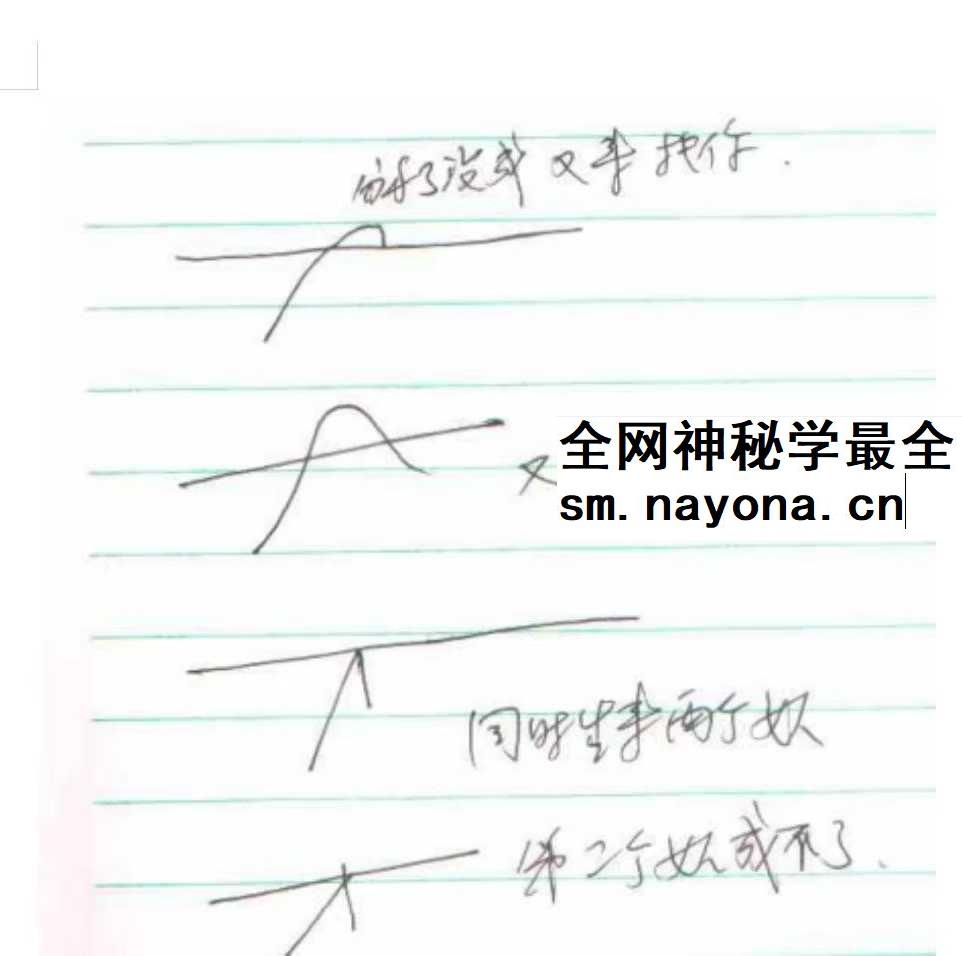 了没成又来找你.
又
全网神秘学最全
sm.nayona.cn
同时生来两个如人
第二个如人成不了.